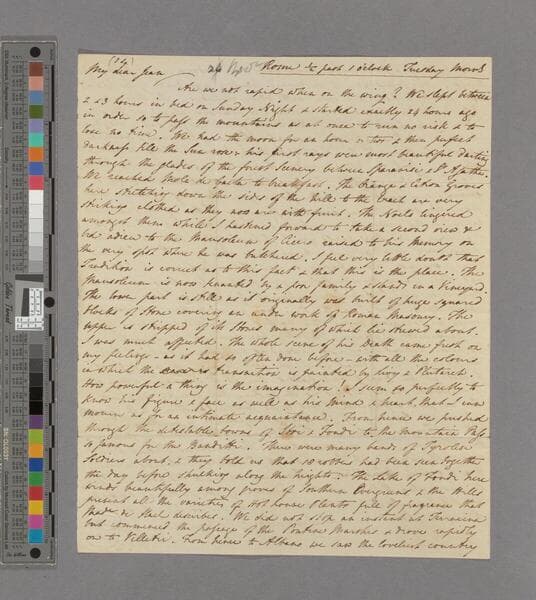 (14)
My dear Jean 24 Novr Rome ½ past 1 o'clock Tuesday Morng
Are we not rapid when on the wing? We slept between
2 & 3 hours in bed on Sunday Night & started exactly 24 hours ago
in order so to pass the mountains as at once to run no risk & to
lose no time. We had the moon for an hour or two & then perfect
darkness till the Sun rose, his first rays were most beautiful darting
through the glades of the forest Scenery between Sparanise & St Agatha.
We reached Mola de Gaeta to breakfast. The Orange & Citron Groves
here stretching down the sides of the hill to the beach are very
striking clothed as they now are with fruit. The Noels lingered
amongst them while I hastened forward to take a second view &
bid adieu to the Mausoleum of Cicero raised to his memory on
the very spot where he was butchered. I feel very little doubt that
Tradition is correct as to this fact & that this is the place. The
Mausoleum is now tenanted by a poor family & stands in a Vineyard.
The lower part is still as it originally was built of huge squared
blocks of Stone covering an under work of Roman Masonry. The
upper is stripped of its Stones many of which lie strewed about.
I was much affected. The whole scene of his Death came fresh on
my feelings - as it had so often done before - with all the colours
in which the transaction is painted by Livy & Plutarch.
How powerful a thing is the imagination! I seem so perfectly to
know his figure & face as well as his mind & heart, that I even
mourn as for an intimate acquaintance. From hence we pushed
through the detestable towns of Itri & Fondi to the Mountain Pass
so famous for the Banditti. There were many bands of Tyrolese
Soldiers about, & they told us that 18 robbers had been seen together
the day before skulking along the heights. The lake of Fondi here
winds beautifully among groves of Southern Evergreens & the Hills
present all the varieties of hot house plants full of fragrance that
Made de Stael describes. We did not stop an instant at Terracina
but commenced the passage of the Pontine Marshes & drove rapidly
on to Velletri. From hence to Albano we saw the loveliest country